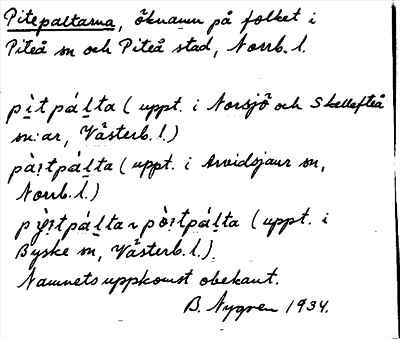 Pitepaltarna, öknamn på folket i
Piteå sn och Piteå stad, Norrb. l.
pì̱tpáḻta (uppt. i Norsjö och Skellefteå
sn:ar, Västerb. l.)
pàı̣tpáḻta (uppt. i Arvidsjaur sn,
Norrb. l.)
pỳı̣tpáḻta ~ pòı̣tpáḻta (uppt. i
Byske sn, Västerb. l.)
Namnets uppkomst obekant.
B. Nygren 1934.